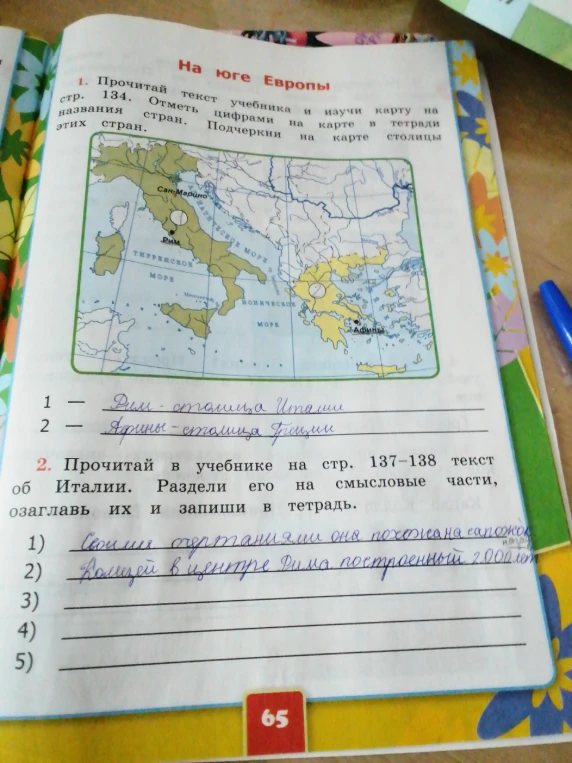 На юге Европы
1. Прочитай текст учебника и изучи карту на
стр. 134. Отметь цифрами на карте в тетради
названия стран. Подчеркни на карте столицы
этих стран.
Сан-Марино
Рим
АДРИАТИЧЕСКОЕ МОРЕ
ТИРРЕНСКОЕ
МОРЕ
ИОНИЧЕСКОЕ
МОРЕ
Афины
1 — Рим - столица Италии
2 — Афины - столица Греции
2. Прочитай в учебнике на стр. 137–138 текст
об Италии. Раздели его на смысловые части,
озаглавь их и запиши в тетрадь.
1) Своими очертаниями она похожа на сапожок
2) Колизей в центре Рима построенный 2000 лет
3)
4)
5)
65